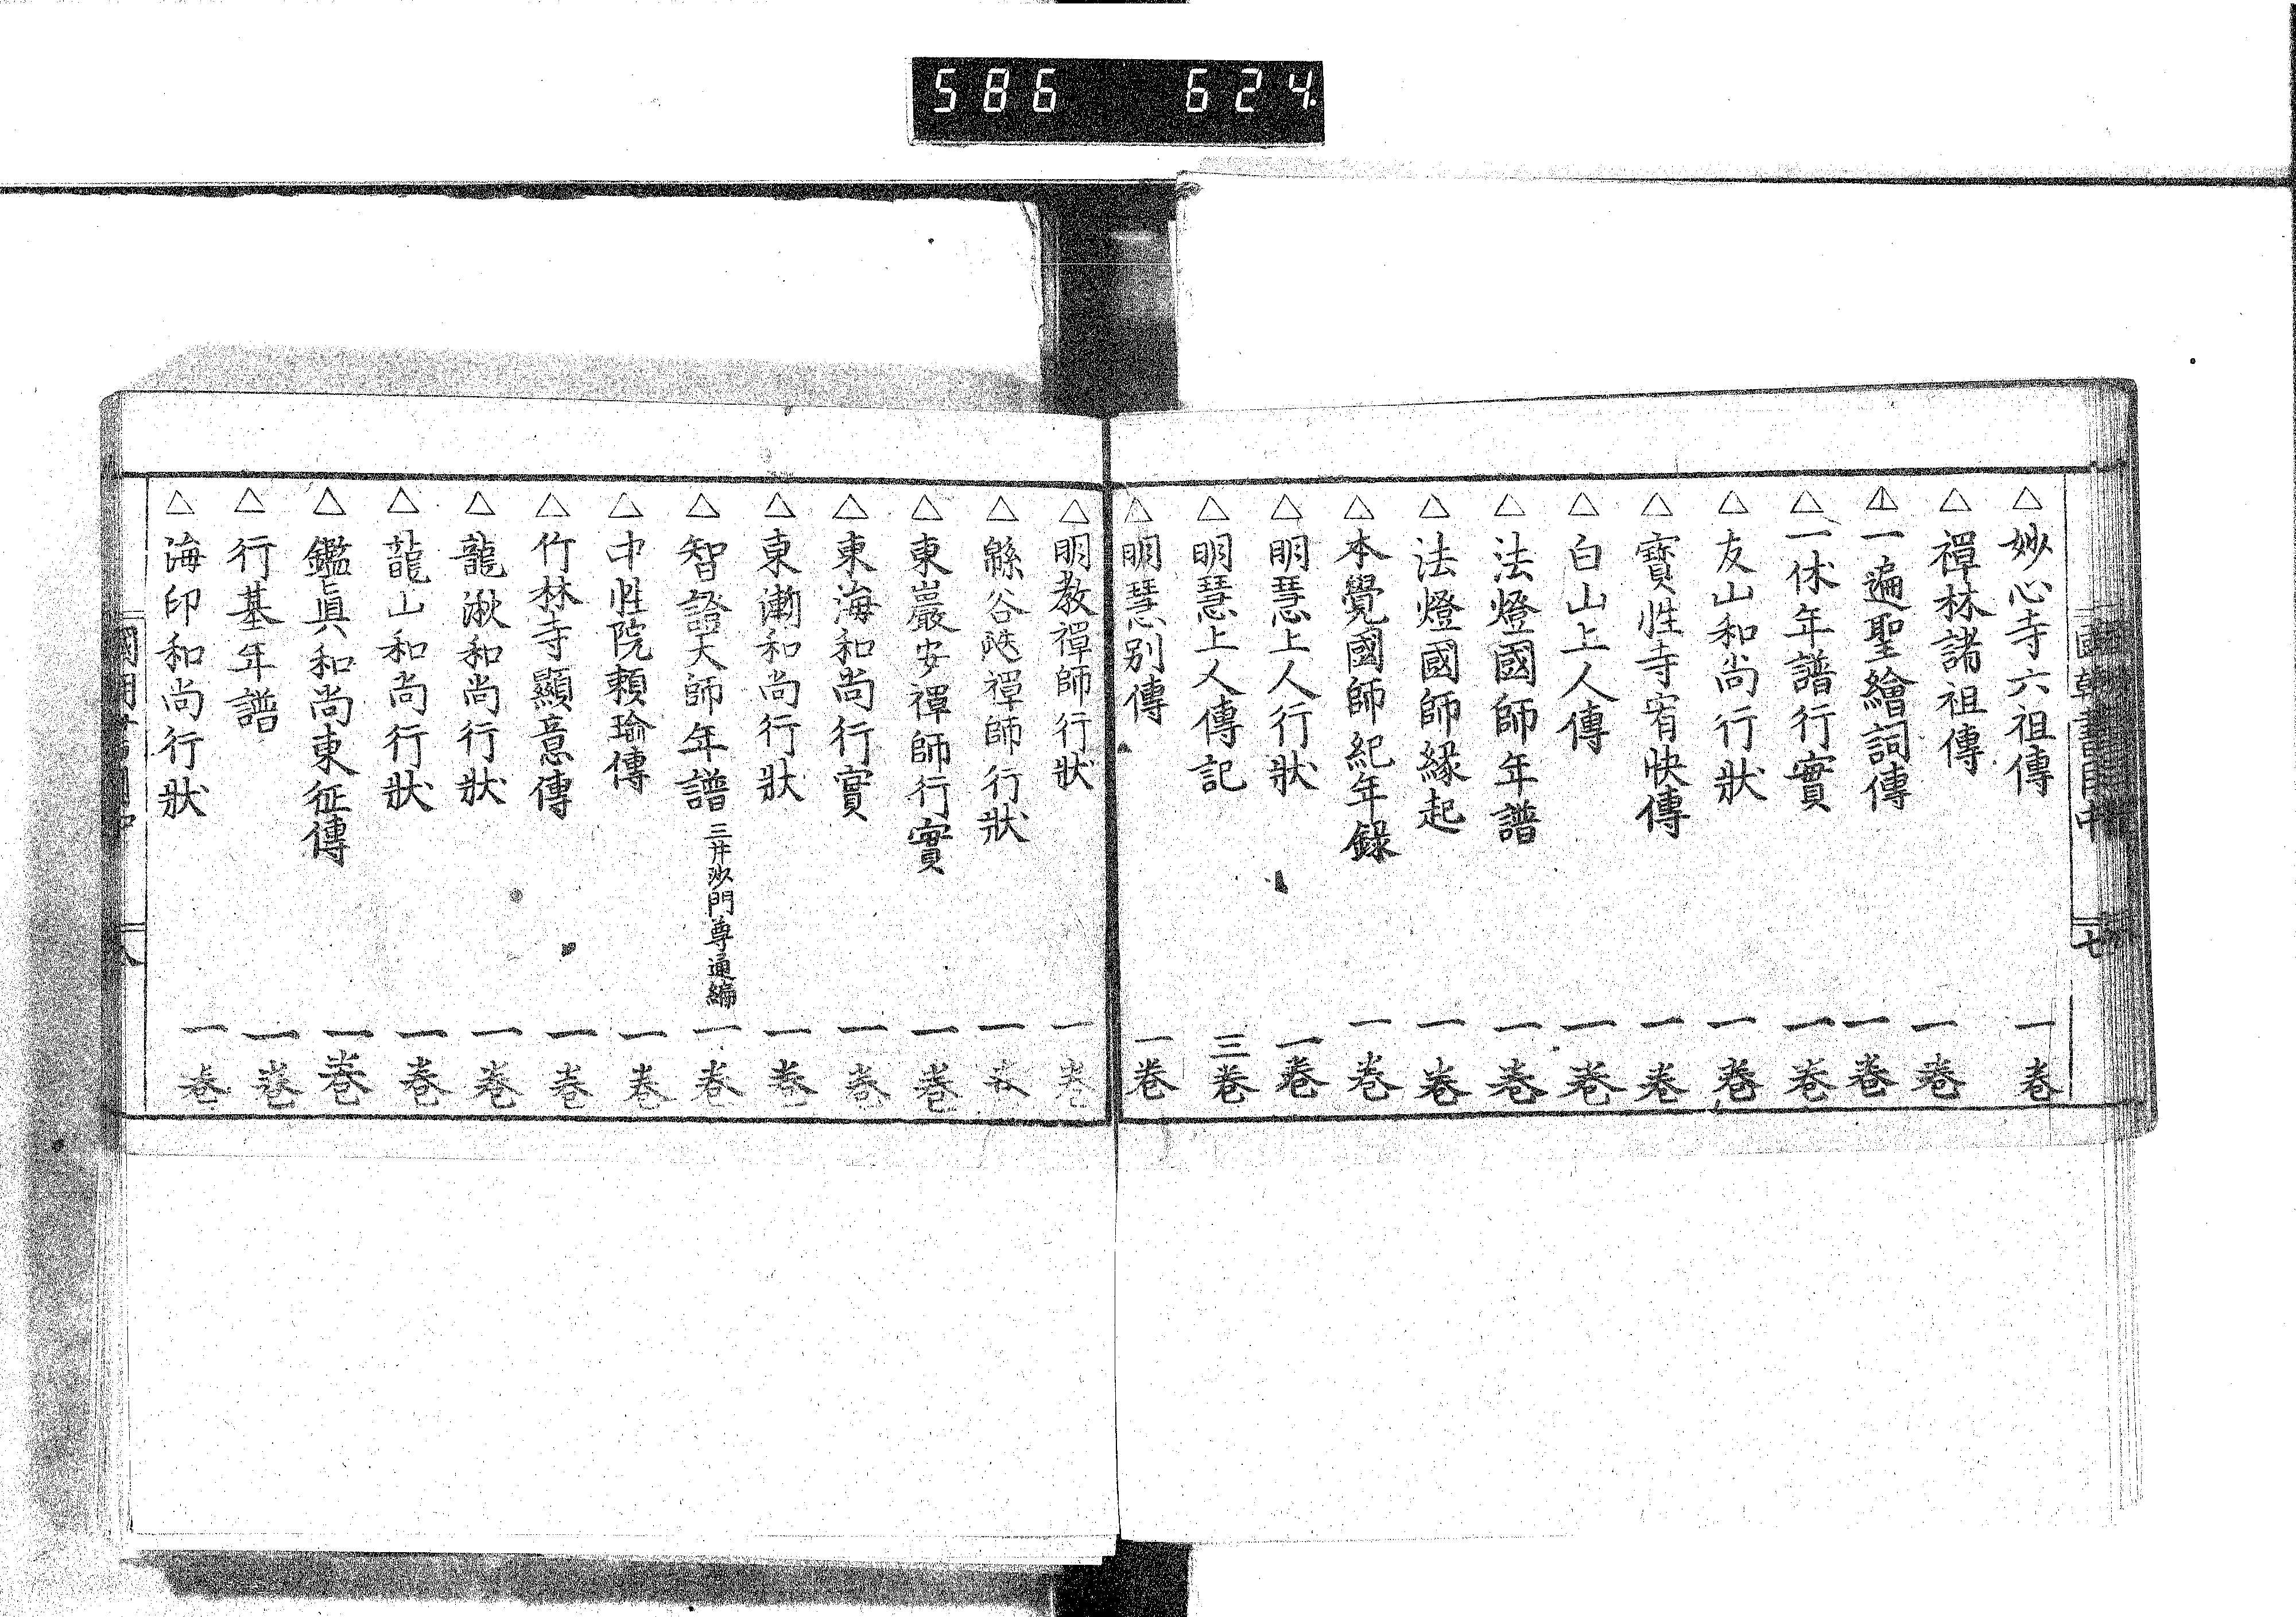 586 624
國朝書目中
七
△妙心寺六祖傳 一卷
△禪林諸祖傳 一卷
△一遍聖繪詞傳 一卷
△一休年譜行實 一卷
△友山和尚行狀 一卷
△寶性寺宥快傳 一卷
△白山上人傳 一卷
△法燈國師年譜 一卷
△法燈國師緣起 一卷
△本覺國師紀年錄 一卷
△明慧上人行狀 一卷
△明慧上人傳記 三卷
△明慧別傳 一卷
△明教禪師行狀 一卷
△緜谷㕧禪師行狀 一卷
△東巖安禪師行實 一卷
△東海和尚行實 一卷
△東漸和尚行狀 一卷
△智證大師年譜 三井沙門尊通編 一卷
△中性院賴瑜傳 一卷
△竹林寺顯意傳 一卷
△龍湫和尚行狀 一卷
△龍山和尚行狀 一卷
△鑑真和尚東征傳 一卷
△行基年譜 一卷
△海印和尚行狀 一卷
八